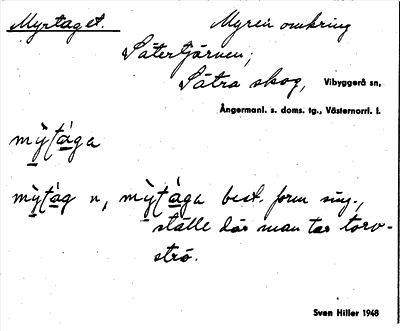 Myrtaget.
Myren omkring
Sätertjärnen;
Sätra skog, Vibyggerå sn,
Ångermanl. s. doms. tg., Västernorrl. l.
mỳtága
mỳtág n, mỳtága best. form sing.,
ställe där man tar torv-
strö.
Sven Hiller 1948